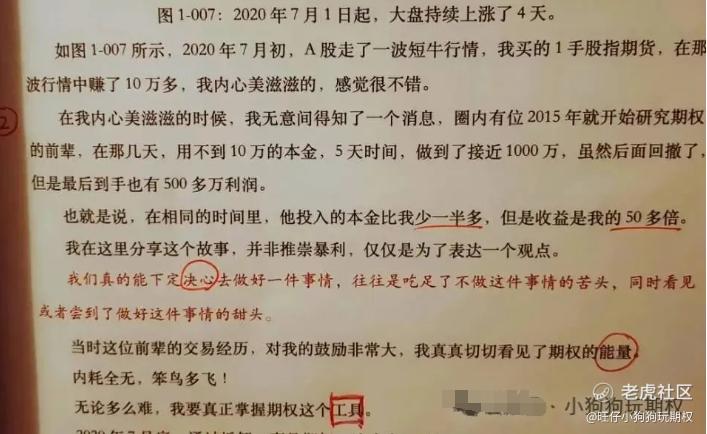 图1-007：2020年7月1日起，大盘持续上涨了4天。
如图1-007所示，2020年7月初，A股走了一波短牛行情，我买的1手股指期货，在那
波行情中赚了10万多，我内心美滋滋的，感觉很不错。
2
在我内心美滋滋的时候，我无意间得知了一个消息，圈内有位2015年就开始研究期权
的前辈，在那几天，用不到10万的本金，5天时间，做到了接近1000万，虽然后面回撤了，
但是最后到手也有500多万利润。
也就是说，在相同的时间里，他投入的本金比我少一半多，但是收益是我的50多倍。
我在这里分享这个故事，并非推崇暴利，仅仅是为了表达一个观点。
我们真的能下定决心去做好一件事情，往往是吃足了不做这件事情的苦头，同时看见
或者尝到了做好这件事情的甜头。
当时这位前辈的交易经历，对我的鼓励非常大，我真真切切看见了期权的能量。
内耗全无，笨鸟多飞！
无论多么难，我要真正掌握期权这个工具。
·小狗狗玩期权
老虎社区
@旺仔小狗狗玩期权